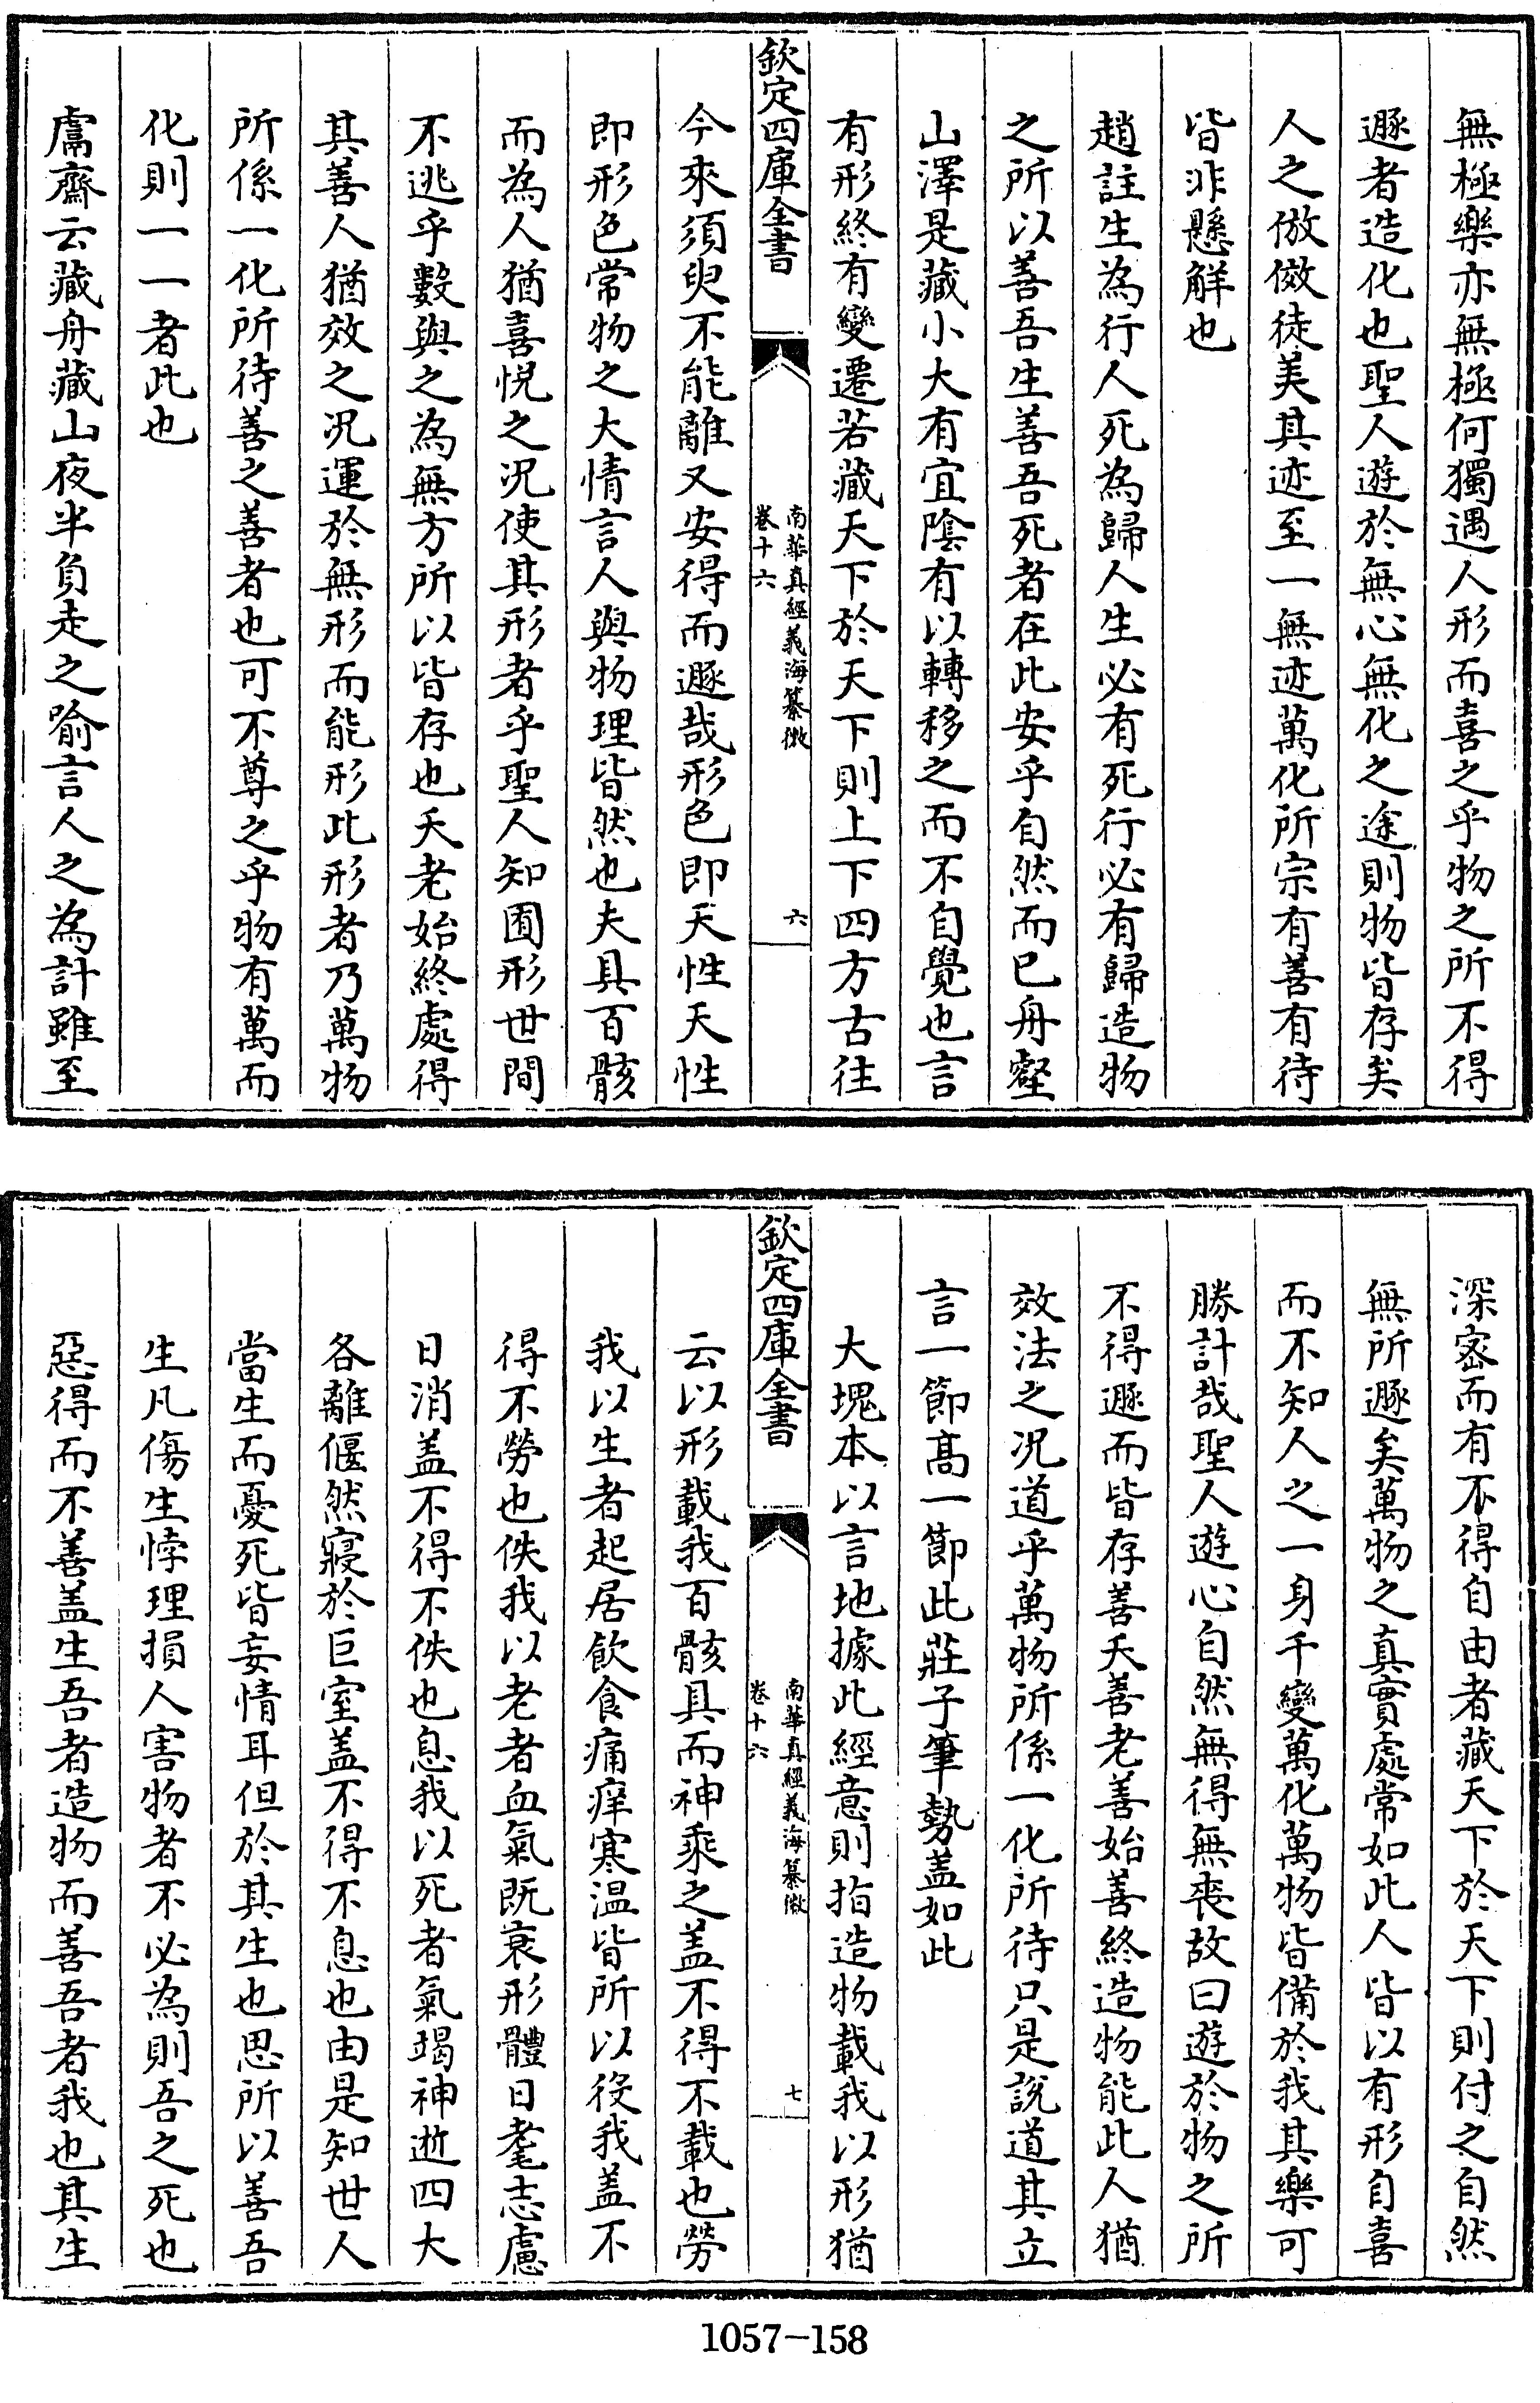 無極樂亦無極何獨遇人形而喜之乎物之所不得
遯者造化也聖人遊於無心無化之途則物皆存矣
人之倣傚徒美其迹至一無迹萬化所宗有善有待
皆非懸解也
趙註生為行人死為歸人生必有死行必有歸造物
之所以善吾生善吾死者在此安乎自然而已舟壑
山澤是藏小大有宜陰有以轉移之而不自覺也言
有形終有變遷若藏天下於天下則上下四方古往
欽定四庫全書
南華真經義海纂微
卷十六
六
今來須臾不能離又安得而遯哉形色即天性天性
即形色常物之大情言人與物理皆然也夫具百骸
而為人猶喜悅之況使其形者乎聖人知囿形世間
不逃乎數與之為無方所以皆存也夭老始終處得
其善人猶效之況運於無形而能形此形者乃萬物
所係一化所待善之善者也可不尊之乎物有萬而
化則一一者此也
鬳齋云藏舟藏山夜半負走之喻言人之為計雖至
深密而有不得自由者藏天下於天下則付之自然
無所遯矣萬物之真實處常如此人皆以有形自喜
而不知人之一身千變萬化萬物皆備於我其樂可
勝計哉聖人遊心自然無得無喪故曰遊於物之所
不得遯而皆存善夭善老善始善終造物能此人猶
效法之況道乎萬物所係一化所待只是說道其立
言一節高一節此莊子筆勢盖如此
大塊本以言地據此經意則指造物載我以形猶
欽定四庫全書
南華真經義海纂微
卷十六
七
云以形載我百骸具而神乘之盖不得不載也勞
我以生者起居飲食痛痒寒温皆所以役我盖不
得不勞也佚我以老者血氣既衰形體日耄志慮
日消盖不得不佚也息我以死者氣竭神逝四大
各離偃然寢於巨室盖不得不息也由是知世人
當生而憂死皆妄情耳但於其生也思所以善吾
生凡傷生悖理損人害物者不必為則吾之死也
惡得而不善盖生吾者造物而善吾者我也其生
1057-158